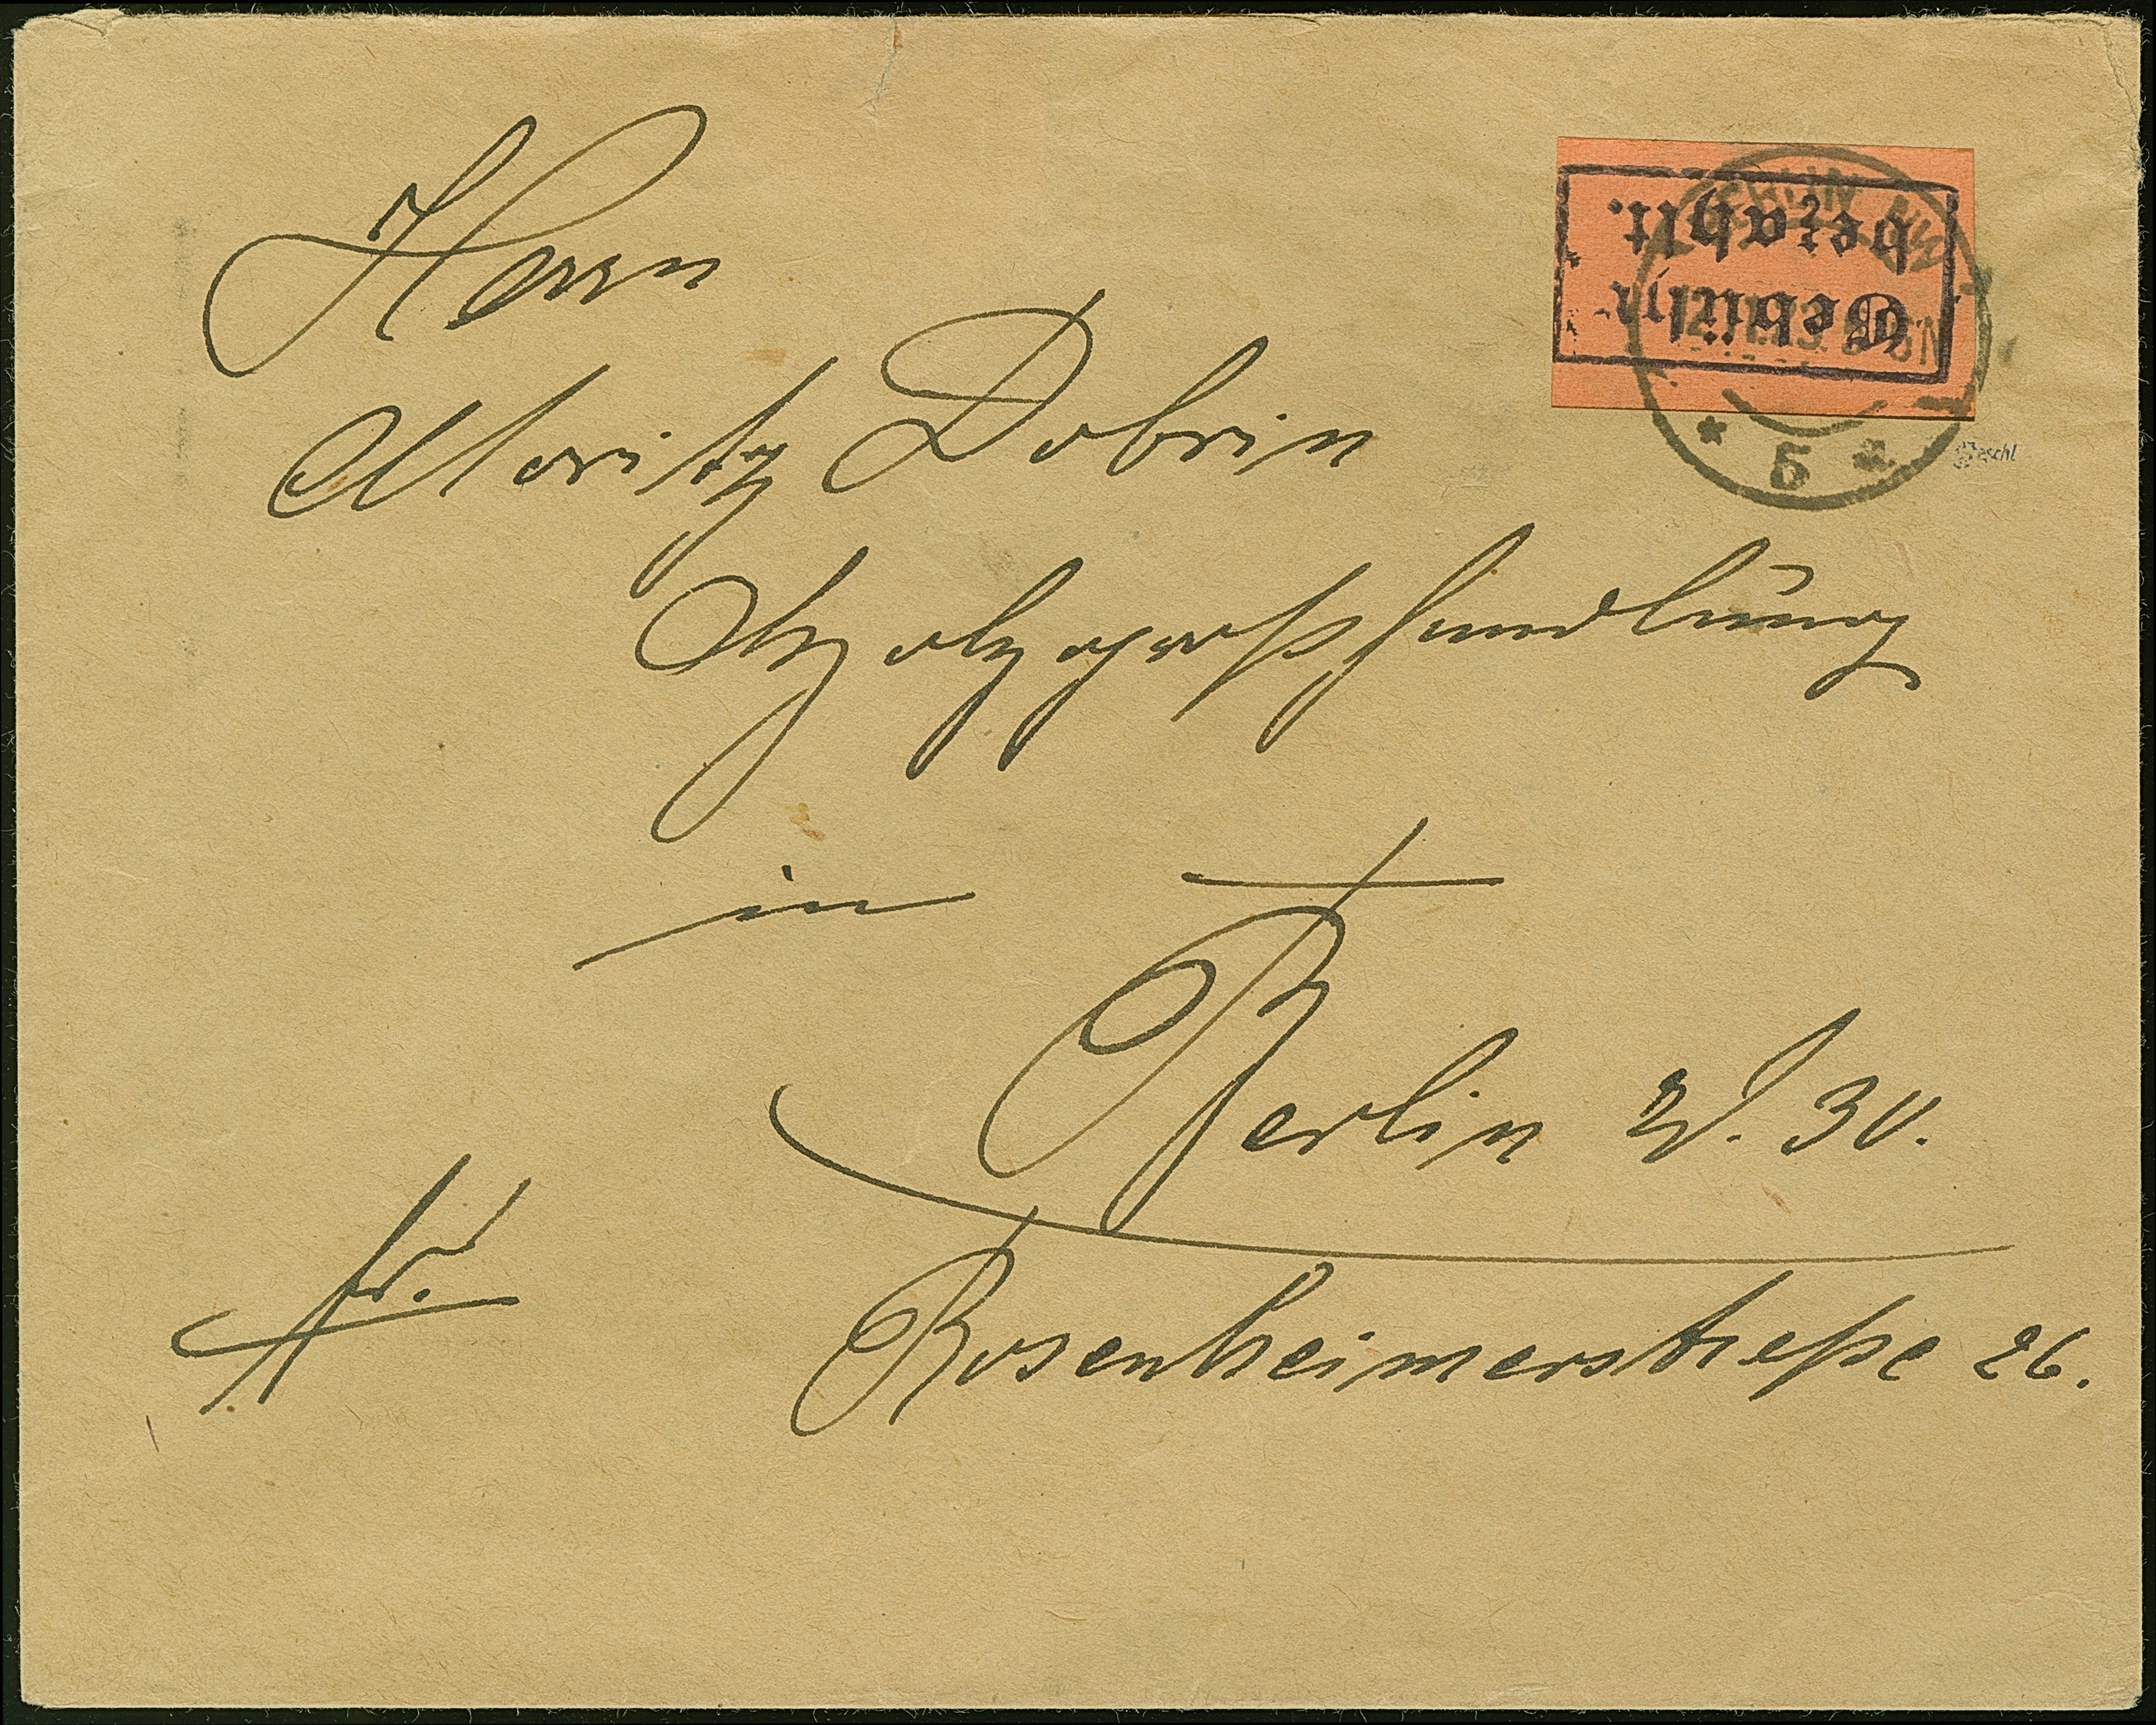 Herrn
Moritz Dobrin
Holzgroßhandlung
in
Berlin W. 30.
Rosenheimerstraße 26.
fr.
Gebühr
bezahlt.
BERLIN NW
5